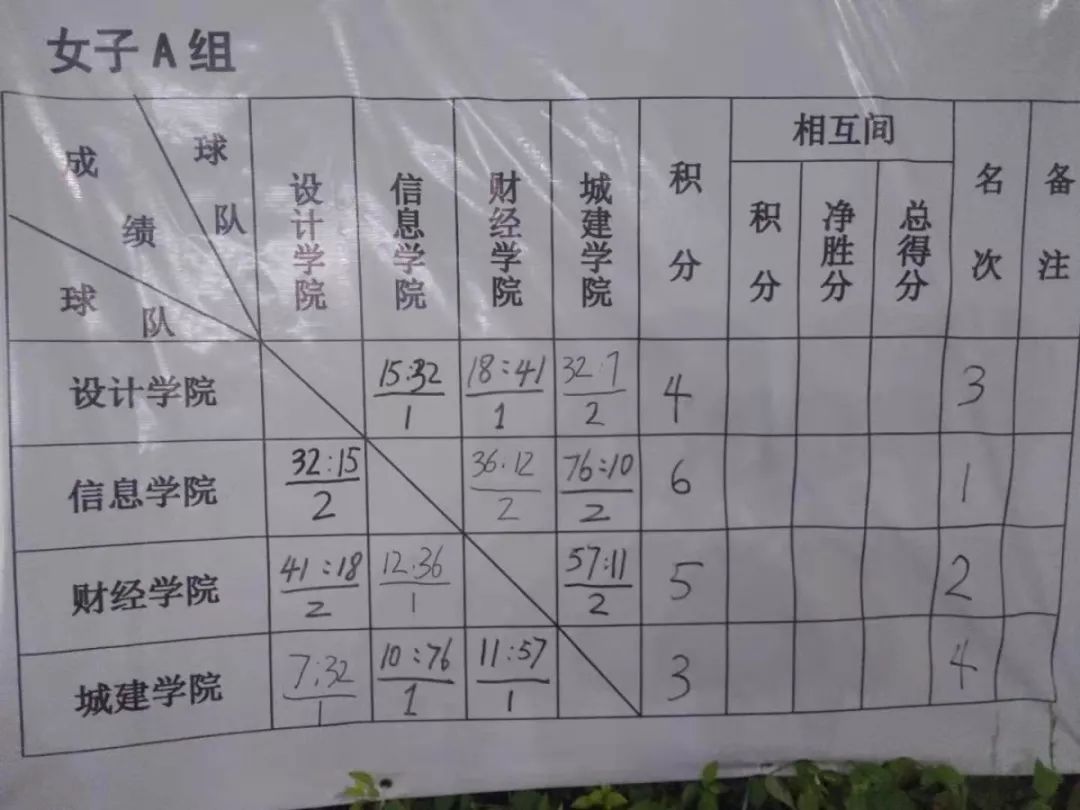 女子 A 组
成绩 球队 球队 设计学院 信息学院 财经学院 城建学院 积分 相互间 积分 净胜分 总得分 名次 备注
设计学院 15:32 1 18:41 1 32:7 2 4 3
信息学院 32:15 2 36:12 2 76:10 2 6 1
财经学院 41:18 2 12:36 1 57:11 2 5 2
城建学院 7:32 1 10:76 1 11:57 1 3 4